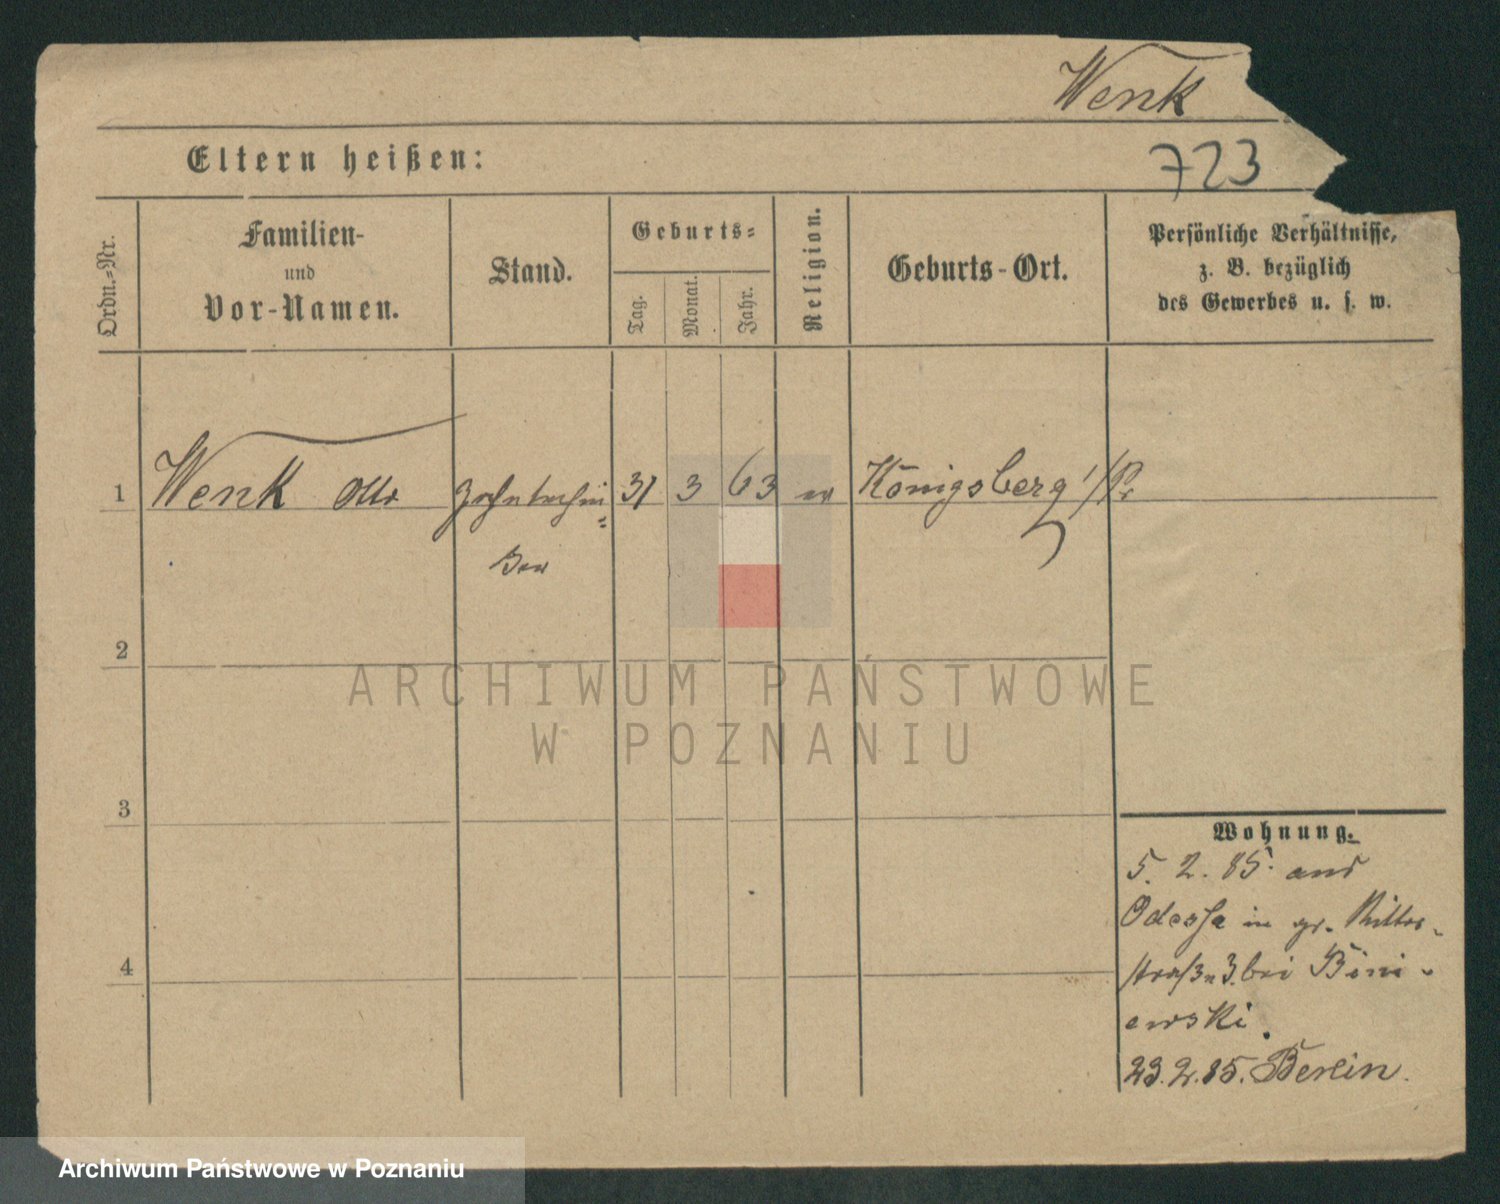 Wenk
Eltern heißen:
723
Ordn.-Nr.
Familien-
und
Vor-Namen.
Stand.
Geburts-
Tag.
Monat.
Jahr.
Religion.
Geburts-Ort.
Persönliche Verhältnisse,
z. B. bezüglich
des Gewerbes u. s. w.
1 Wenk Otto 31 3 63 ev Königsberg i/Pr
2
ARCHIWUM PAŃSTWOWE
W POZNANIU
3
Wohnung.
5. 2. 85. aus
Odessa in gr. Ritter-
straße 3. bei Bini-
ewski.
4
23. 2. 85. Berlin.
Archiwum Państwowe w Poznaniu